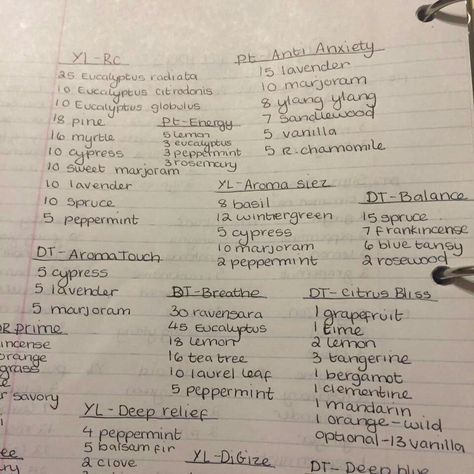 YL-RC
25 Eucalyptus radiata
10 Eucalyptus citrodonis
10 Eucalyptus globulus
18 pine
16 myrtle
10 cypress
10 sweet marjoram
10 lavender
10 spruce
5 peppermint
Pt-Energy
5 lemon
3 eucalyptus
3 peppermint
3 rosemary
Pt-Anti Anxiety
15 lavender
10 marjoram
8 ylang ylang
7 Sandlewood
5 vanilla
5 R. chamomile
YL-Aroma siez
8 basil
12 wintergreen
5 cypress
10 marjoram
2 peppermint
DT-Balance
15 spruce
7 Frankincense
6 blue tansy
2 rosewood
DT-AromaTouch
5 cypress
5 lavender
5 marjoram
DT-Breathe
30 ravensara
45 Eucalyptus
18 lemon
16 tea tree
10 laurel leaf
5 peppermint
DT-Citrus Bliss
1 grapefruit
1 lime
2 lemon
3 tangerine
1 bergamot
1 clementine
1 mandarin
1 orange-wild
optional-13 vanilla
prime
incense
orange
grass
savory
YL-Deep relief
4 peppermint
5 balsam fir
2 clove
YL-DiGize
DT-Deep blue